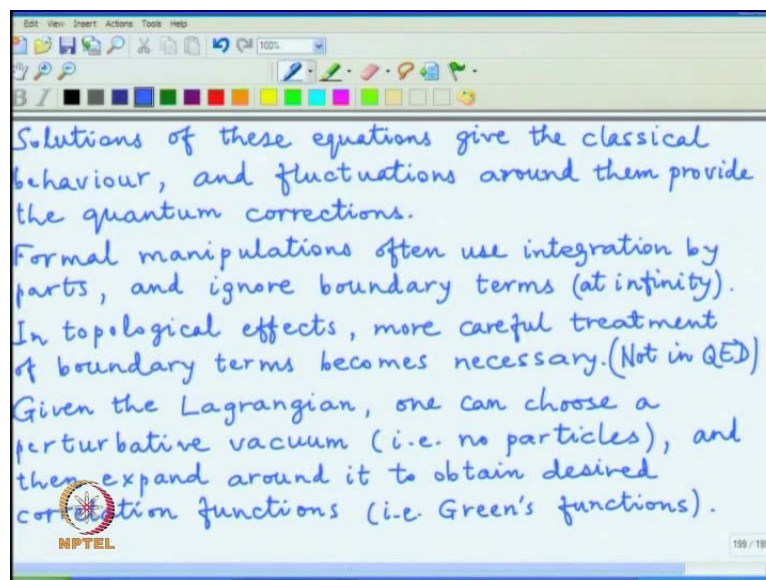 Edit View Insert Actions Tools Help
100%
B I
Solutions of these equations give the classical
behaviour, and fluctuations around them provide
the quantum corrections.
Formal manipulations often use integration by
parts, and ignore boundary terms (at infinity).
In topological effects, more careful treatment
of boundary terms becomes necessary. (Not in QED)
Given the Lagrangian, one can choose a
perturbative vacuum (i.e. no particles), and
then expand around it to obtain desired
correlation functions (i.e. Green's functions).
NPTEL
199 / 199